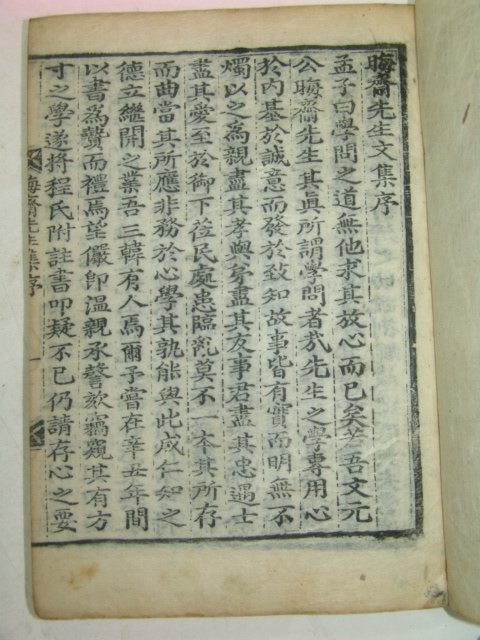 晦齋先生文集序
孟子曰學問之道無他求其放心而已矣若吾文元
公晦齋先生其眞所謂學問者哉先生之學專用心
於內基於誠意而發於致知故事皆有實而明無不
燭以之為親盡其孝與弟盡其友事君盡其忠遇士
盡其愛至於御下莅民處患臨亂莫不一本其所存
而曲當其所應非務於心學其孰能與此成仁知之
德立繼開之業吾三韓有人焉爾予嘗在辛丑年間
以書為贄而禮焉望儼即溫親承謦欬竊窺其有方
寸之學遂將程氏附註書叩疑不已仍請存心之要
晦齋先生集序
一